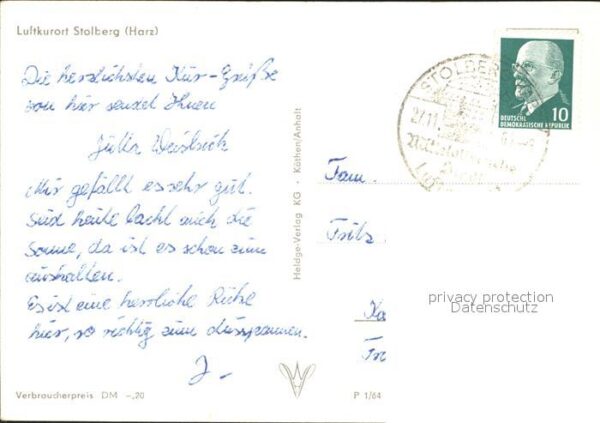 Luftkurort Stolberg (Harz)
Die herzlichsten Kur-Grüße
von hier sendet Ihnen
Jutta
Mir gefällt es sehr gut.
Und heute lacht auch die
Sonne, da ist es schon zum
aushalten.
Es ist eine herrliche Ruhe
hier, so richtig zum Ausspannen.
J.
Verbraucherpreis DM -,20
Heldge-Verlag KG · Köthen/Anhalt
P 1/64
STOLBERG
27.11.
Mittelalterliche
10
DEUTSCHE
DEMOKRATISCHE REPUBLIK
Fam.
Fritz
privacy protection
Datenschutz